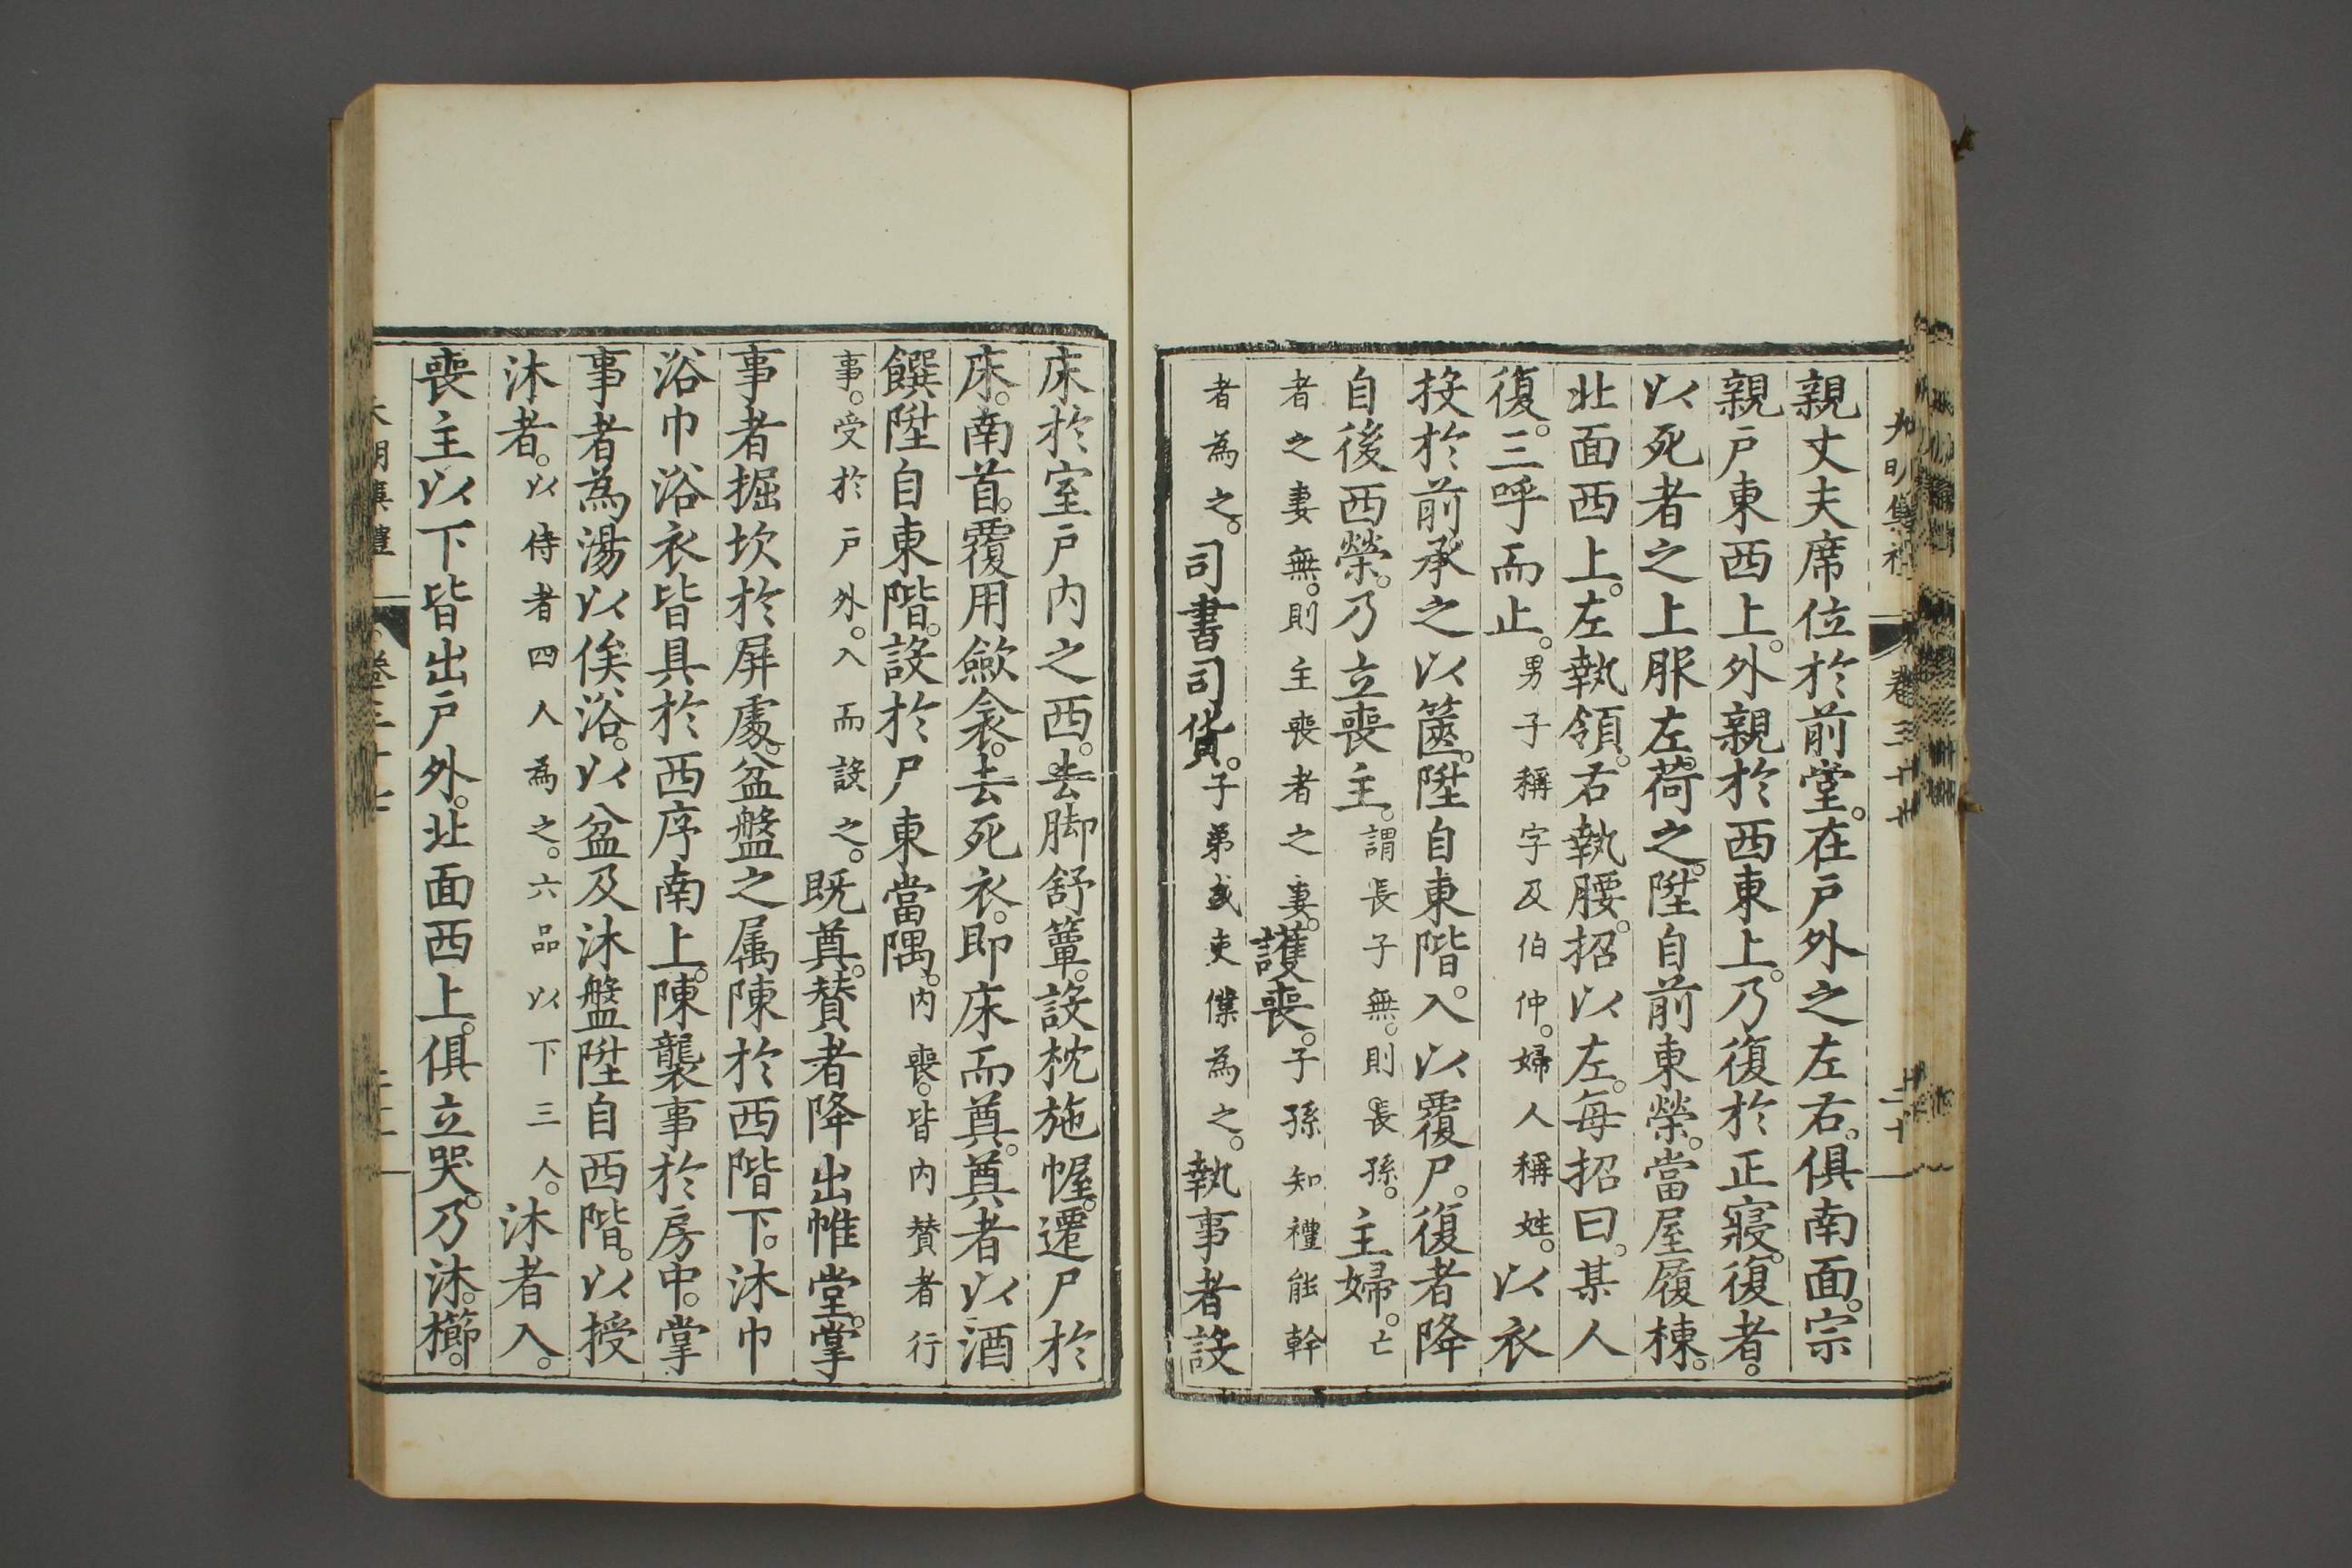 親丈夫席位於前堂。在戸外之左右。俱南面。宗
親戸東西上。外親於西東上。乃復於正寢。復者。
以死者之上服左荷之。陞自前東榮。當屋履棟。
北面西上。左執領。右執腰。招以左。每招曰。某人
復。三呼而止。男子稱字及伯仲。婦人稱姓。以衣
投於前。承之以篋。陞自東階。入以覆尸。復者降
自後西榮。乃立喪主。謂長子無。則長孫。主婦。亡
者之妻無。則主喪者之妻。護喪。子孫知禮能幹
者為之。司書司貨。子弟或吏僕為之。執事者設
床於室戸内之西。去脚舒簟。設枕施幄。遷尸於
床。南首。覆用斂衾。去死衣。即床而奠。奠者以酒
饌陞自東階。設於尸東當隅。内喪。皆内賛者行
事。受於戸外。入而設之。既奠。賛者降出帷堂。掌
事者掘坎於屏處。盆盤之属陳於西階下。沐巾
浴巾浴衣皆具於西序南上。陳襲事於房中。掌
事者為湯以俟浴。以盆及沐盤陞自西階。以授
沐者。以侍者四人為之。六品以下三人。沐者入。
喪主以下皆出戸外。北面西上。俱立哭。乃沐。櫛。